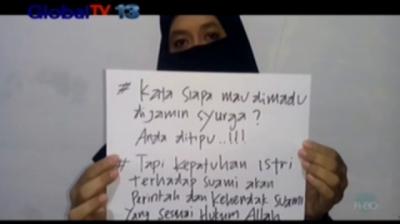 GlobalTV 13
# Kata Siapa mau dimadu
dijamin syurga?
Anda ditipu..!!!
# Tapi kepatuhan istri
terhadap suami akan
Perintah dan Kehendak Suami
Yang sesuai Hukum Allah